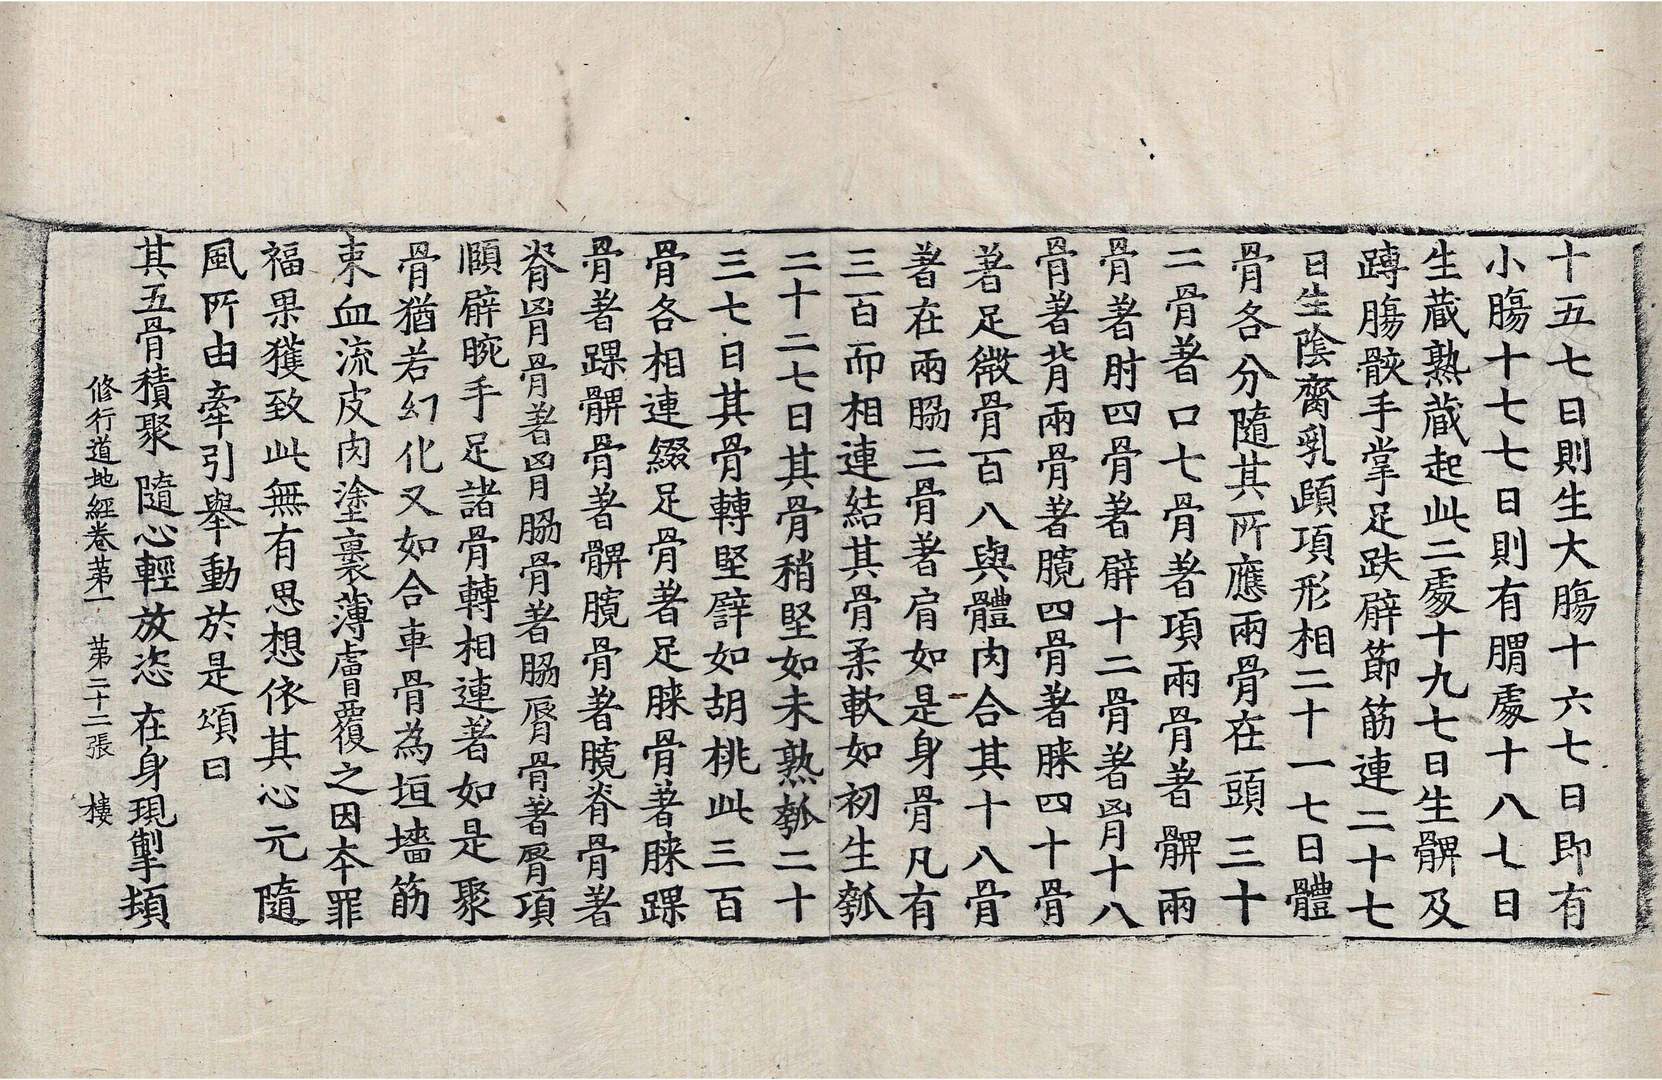 十五七日則生大膓十六七日即有
小膓十七七日則有胃處十八七日
生蔵熟蔵起此二處十九七日生髀及
蹲膓骸手掌足趺臂節筋連二十七
日生陰齎乳頤項形相二十一七日體
骨各分隨其所應兩骨在頭三十
二骨著口七骨著項兩骨著髀兩
骨著肘四骨著臂十二骨著胷十八
骨著背兩骨著臗四骨著䐐四十骨
著足微骨百八與體肉合其十八骨
著在兩脇二骨著肩如是身骨凡有
三百而相連結其骨柔軟如初生瓠
二十二七日其骨稍堅如未熟瓠二十
三七日其骨轉堅譬如胡桃此三百
骨各相連綴足骨著足䐐骨著䐐踝
骨著踝髀骨著髀臗骨著臗脊骨著
脊胷骨著胷脇骨著脇脣骨著脣項
頤臂腕手足諸骨轉相連著如是聚
骨猶若幻化又如合車骨為垣墻筋
束血流皮肉塗裏薄膚覆之因夲罪
福果獲致此無有思想依其心元隨
風所由牽引舉動於是頌曰
其五骨積聚 隨心輕放恣 在身現掣頓
修行道地經卷苐一 苐二十二張 樓